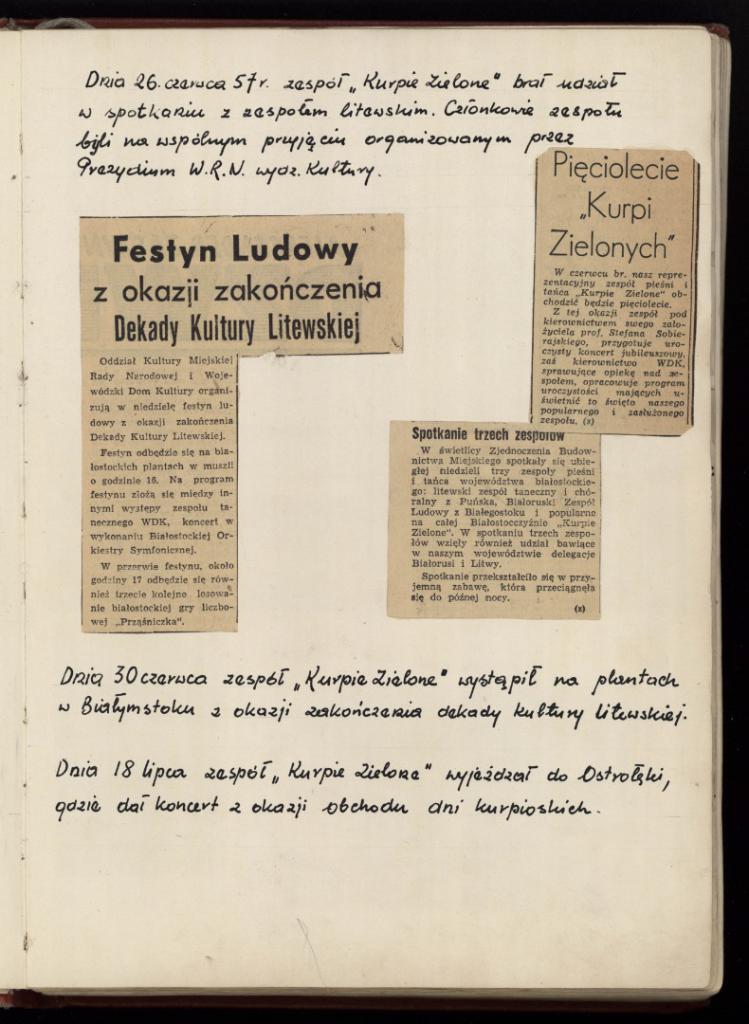 Dnia 26. czerwca 57 r. zespół „Kurpie Zielone" brał udział
w spotkaniu z zespołem litewskim. Członkowie zespołu
byli na wspólnym przyjęciu organizowanym przez
Prezydium W.R.N. wydz. Kultury.
Pięciolecie
„Kurpi
Zielonych"
W czerwcu br. nasz repre-
zentacyjny zespół pieśni i
tańca „Kurpie Zielone" ob-
chodzić będzie pięciolecie.
Z tej okazji zespół pod
kierownictwem swego zało-
życiela prof. Stefana Sobie-
rajskiego, przygotuje uro-
czysty koncert jubileuszowy,
zaś kierownictwo WDK,
sprawujące opiekę nad ze-
społem, opracowuje program
uroczystości mających u-
świetnić to święto naszego
popularnego i zasłużonego
zespołu. (z)
Festyn Ludowy
z okazji zakończenia
Dekady Kultury Litewskiej
Oddział Kultury Miejskiej
Rady Narodowej i Woje-
wódzki Dom Kultury organi-
zują w niedzielę festyn lu-
dowy z okazji zakończenia
Dekady Kultury Litewskiej.
Festyn odbędzie się na bia-
łostockich plantach w muszli
o godzinie 16. Na program
festynu złożą się między in-
nymi występy zespołu ta-
necznego WDK, koncert w
wykonaniu Białostockiej Or-
kiestry Symfonicznej.
W przerwie festynu, około
godziny 17 odbędzie się rów-
nież trzecie kolejno losowa-
nie białostockiej gry liczbo-
wej „Prząśniczka".
Spotkanie trzech zespołów
W świetlicy Zjednoczenia Budow-
nictwa Miejskiego spotkały się ubie-
głej niedzieli trzy zespoły pieśni
i tańca województwa białostockie-
go: litewski zespół taneczny i chó-
ralny z Puńska, Białoruski Zespół
Ludowy z Białegostoku i popularne
na całej Białostocczyźnie „Kurpie
Zielone". W spotkaniu trzech zespo-
łów wzięły również udział bawiące
w naszym województwie delegacje
Białorusi i Litwy.
Spotkanie przekształciło się w przy-
jemną zabawę, która przeciągnęła
się do późnej nocy.
(z)
Dnia 30 czerwca zespół „Kurpie Zielone" wystąpił na plantach
w Białymstoku z okazji zakończenia dekady kultury litewskiej.
Dnia 18 lipca zespół „Kurpie Zielone" wyjeżdżał do Ostrołęki,
gdzie dał koncert z okazji obchodu dni kurpioskich.